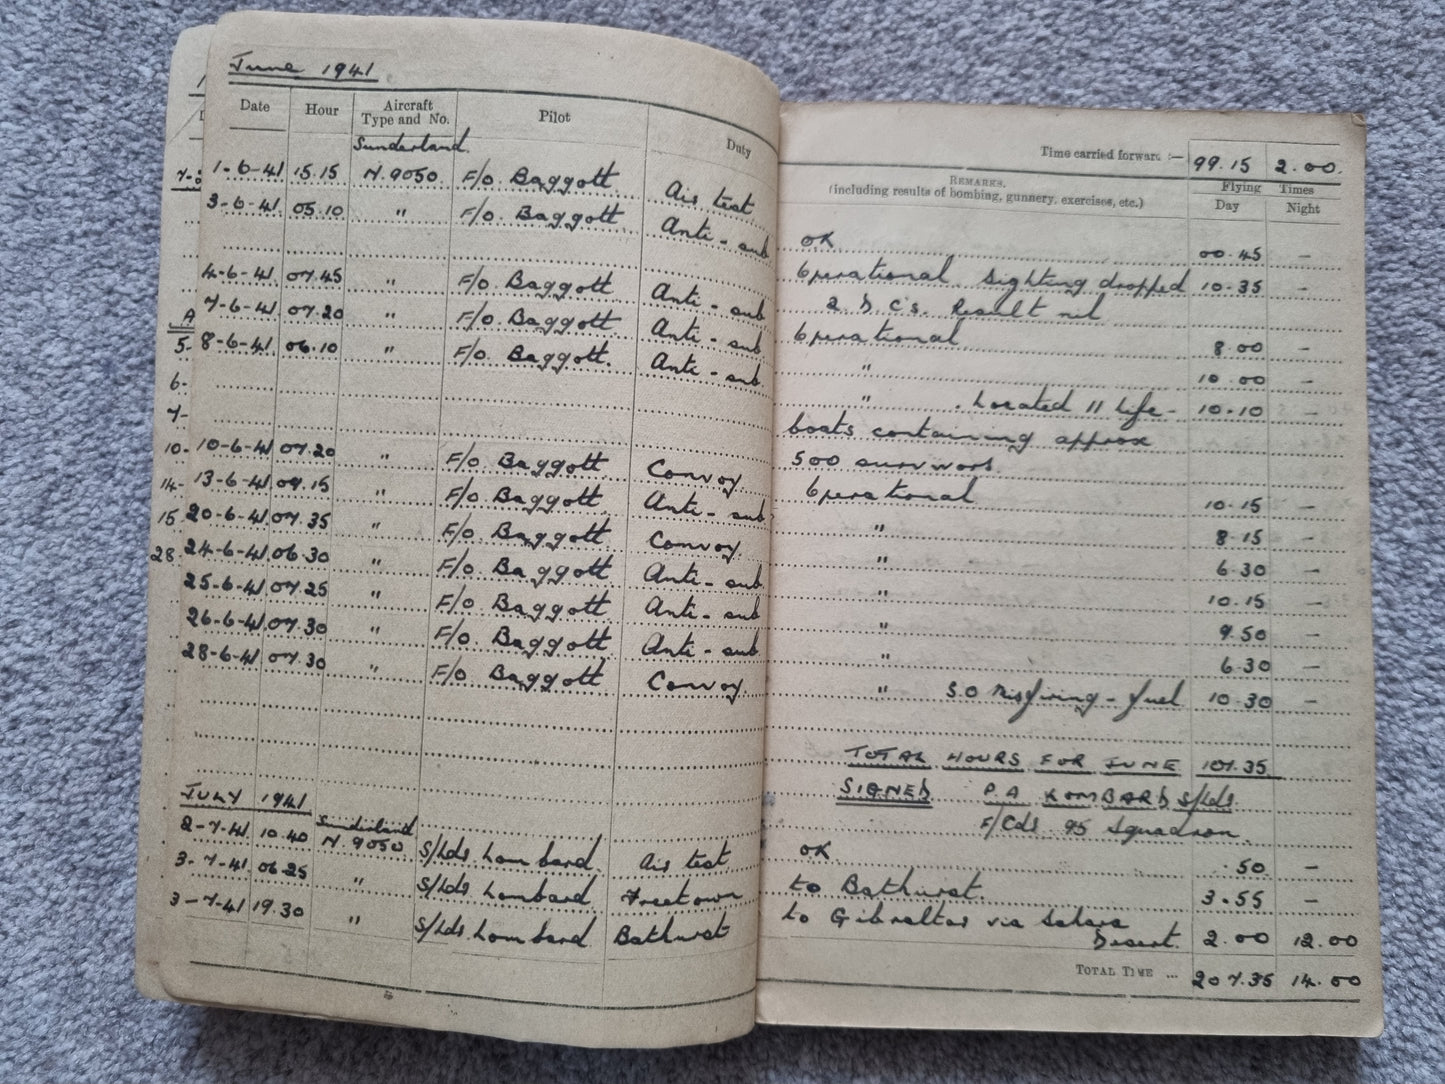 June 1941
Date Hour Aircraft Type and No. Pilot Duty
Sunderland.
1-6-41 15.15 N.9050 F/O Baggott Air test
3-6-41 05.10 " F/O. Baggott Anti-sub
4-6-41 07.45 " F/O Baggott Anti-sub
7-6-41 07.20 " F/O. Baggott Anti-sub
8-6-41 06.10 " F/O. Baggott. Anti-sub.
10-6-41 07.20 " F/O. Baggott Convoy
13-6-41 07.15 " F/O. Baggott Anti-sub
20-6-41 07.35 " F/O. Baggott Convoy.
24-6-41 06.30 " F/O. Baggott Anti-sub
25-6-41 07.25 " F/O. Baggott Anti-sub
26-6-41 07.30 " F/O. Baggott Anti-sub
28-6-41 07.30 " F/O Baggott Convoy.
JULY 1941
Sunderland
2-7-41 10.40 N.9050 S/Ldr Lombard Air test
3-7-41 06.25 " S/Ldr Lombard Freetown
3-7-41 19.30 " S/Ldr Lombard Bathurst
A
5-
6-
7-
10-
14-
15
28
Time carried forward :— 99.15 2.00.
REMARKS.
(including results of bombing, gunnery, exercises, etc.)
Flying Times
Day Night
OK 00.45 —
Operational. Sighting dropped 10.35 —
2 D.C's. Result nil
Operational 8.00 —
" 10.00 —
" . Located 11 life- 10.10 —
boats containing approx
500 survivors.
Operational 10.15 —
" 8.15 —
" 6.30 —
" 10.15 —
" 9.50 —
" 6.30 —
" S.O Misfiring - fuel 10.30 —
TOTAL HOURS FOR JUNE 107.35
SIGNED P.A LOMBARD S/Ldr.
F/Cdr 95 Squadron.
OK .50 —
to Bathurst. 3.55 —
to Gibraltar via Sahara
Desert. 2.00 12.00
TOTAL TIME ... 207.35 14.00